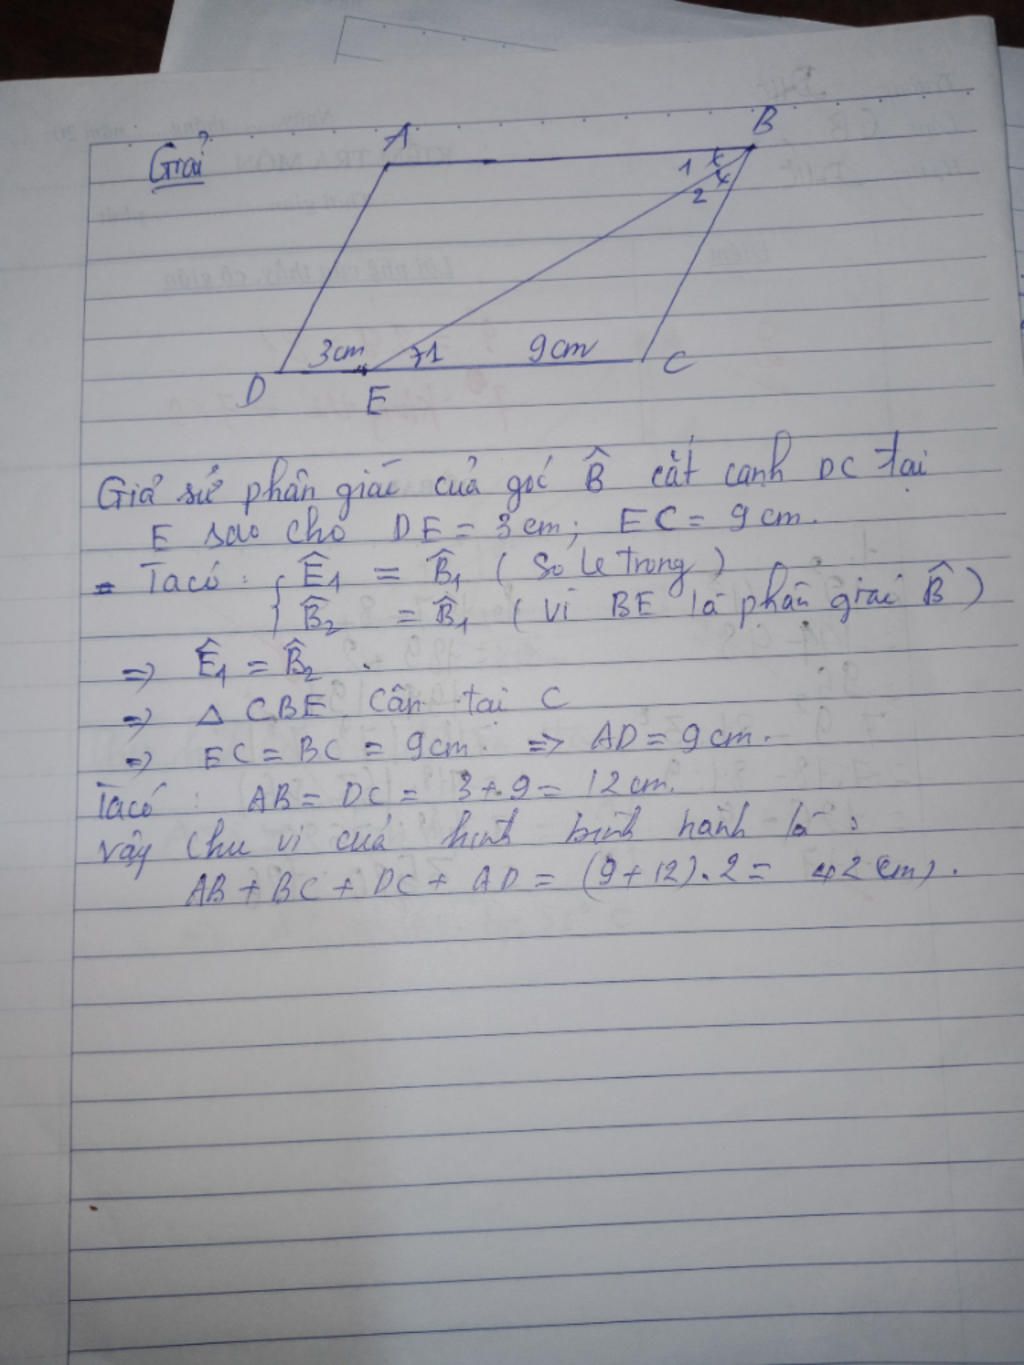 Giải
A
B
1
2
3cm
1
9cm
D
E
C
Giả sử phân giác của góc B̂ cắt cạnh DC tại
E sao cho DE = 3cm; EC = 9cm.
= Ta có : { Ê1 = B̂1 ( So le trong )
{ B̂2 = B̂1 ( vì BE là phân giác B̂ )
=> Ê1 = B̂2 .
=> Δ CBE cân tại C
=> EC = BC = 9cm. => AD = 9cm.
Ta có : AB = DC = 3 + 9 = 12cm.
vậy chu vi của hình bình hành là :
AB + BC + DC + AD = (9+12).2 = 42 cm) .